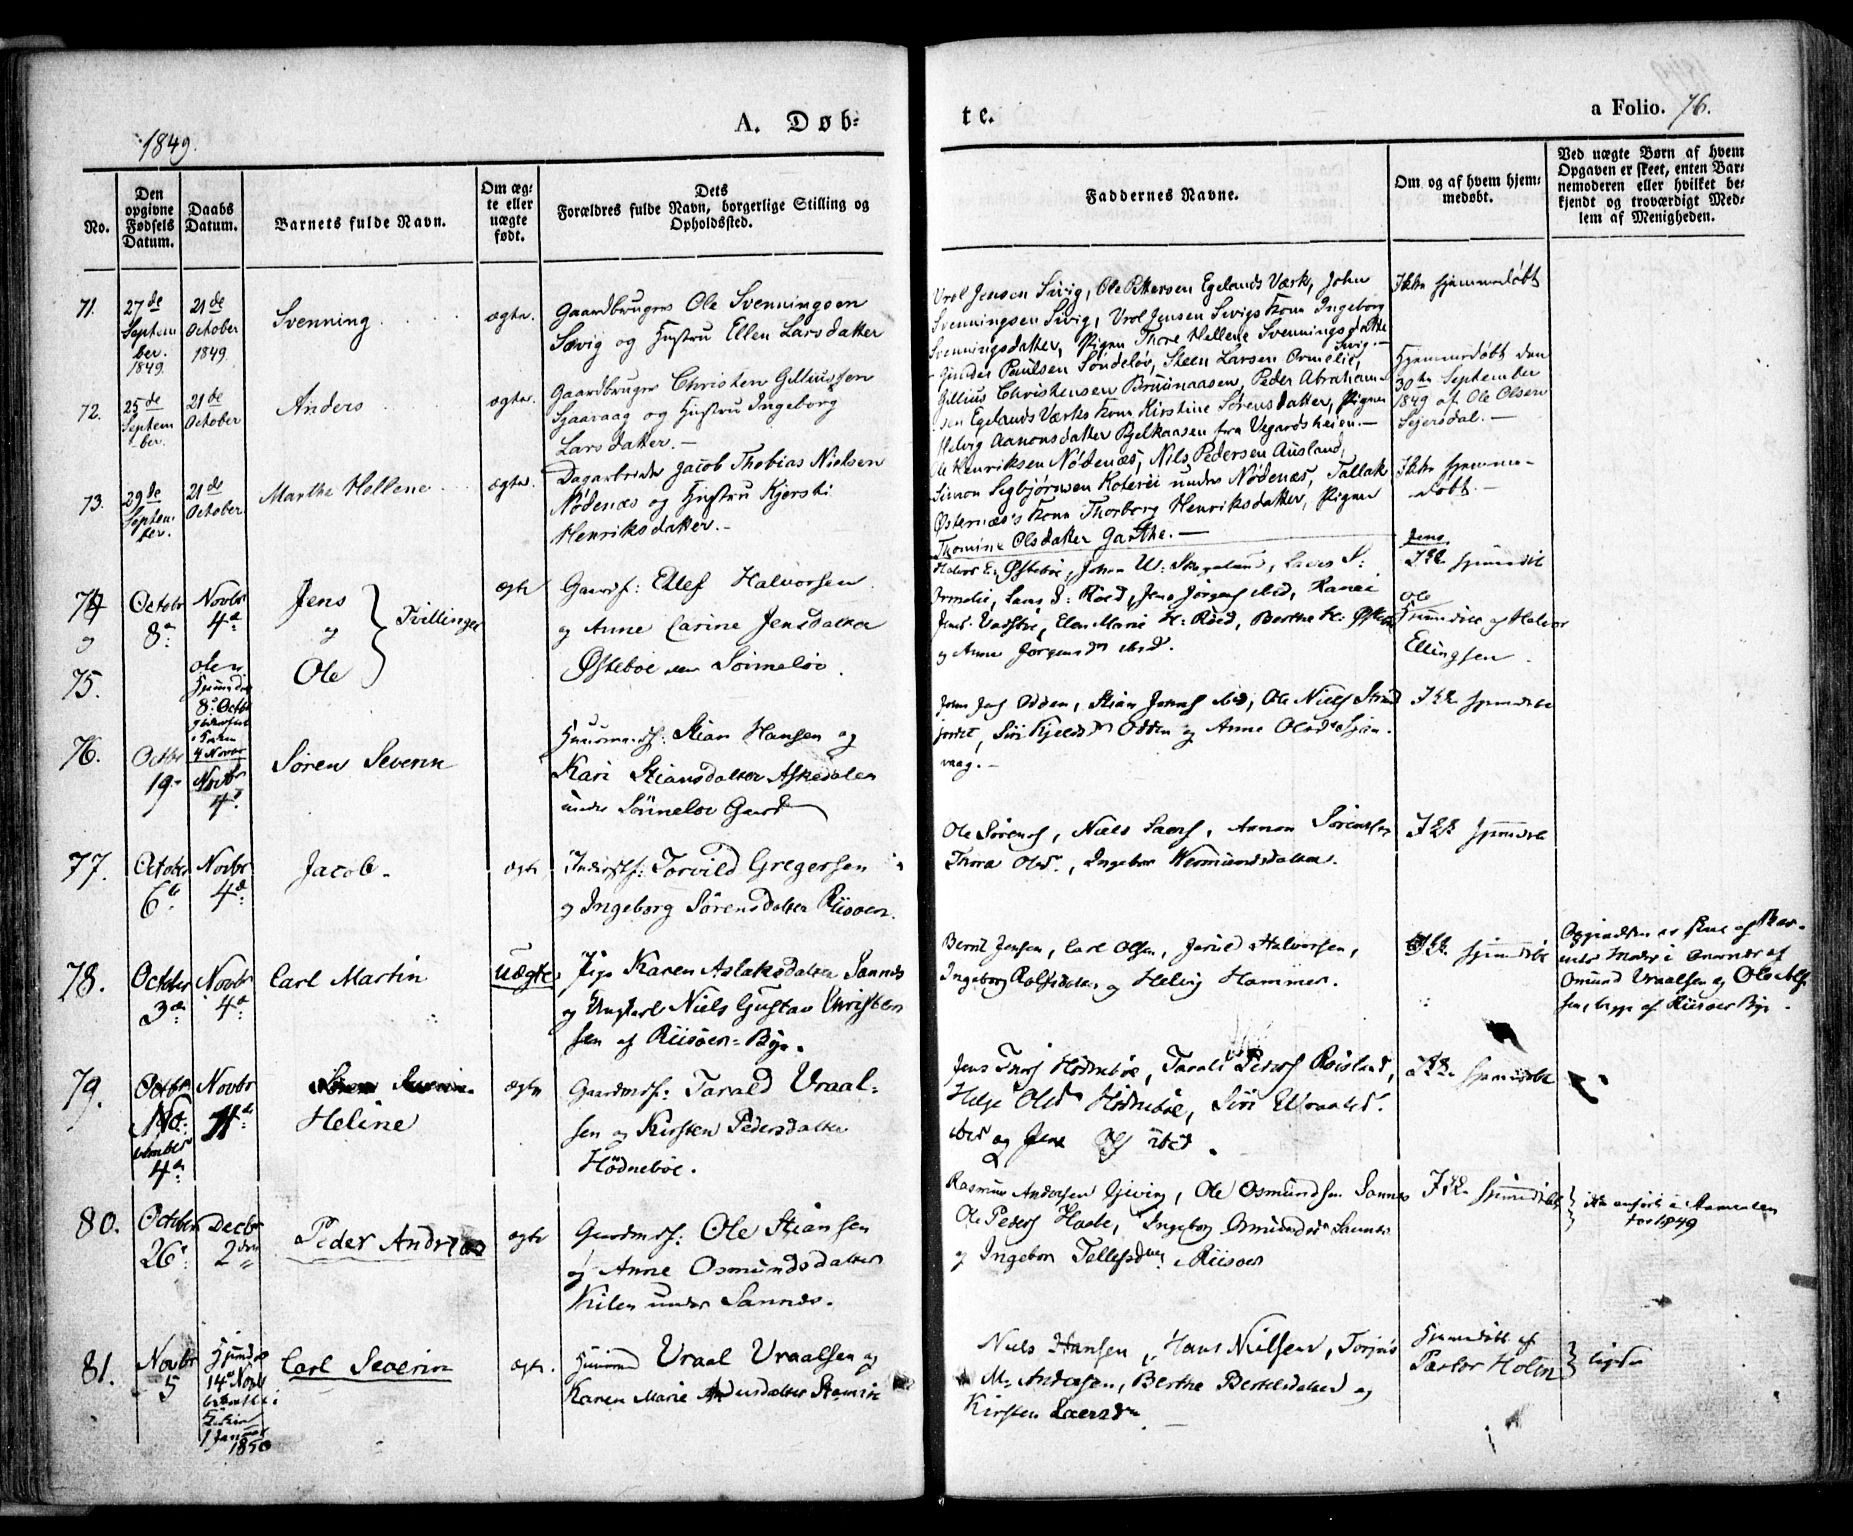 1849.
A. Døb-
te.
a Folio. 76.
No.
Den opgivne Fødsels Datum.
Daabs Datum.
Barnets fulde Navn.
Om ægte eller uægte født.
Dets
Forældres fulde Navn, borgerlige Stilling og
Opholdssted.
Faddernes Navne.
Om og af hvem hjem-
medøbt.
Ved uægte Børn af hvem
Opgaven er skeet, enten Bar-
nemoderen eller hvilket be-
kjendt og troværdigt Med-
lem af Menigheden.
71.
27de
Septem
ber.
1849.
21de
October
1849.
Svenning
ægte.
Gaardbruger Ole Svenningsen
Sævig og Hustru Ellen Larsdatter
Vrol Jensen Sivig, Ole Pettersen Egelands Værk, John
Svenningsen Sivig, Vrol Jensen Sevigs Kone Ingeborg
Svenningsdatter, Pigen Thore Hellene Svenningsdatte
Sivig.-
Ikke hjemmedøbt
72.
25de
Septem
ber.
21de
October
Anders
ægte.
Gaardbruger Christen Gilliussen
Sjaaraag og Hustru Ingeborg
Larsdatter.-
Paulsen Søndeløv, Steen Larsen Ormelie,
Gillius Christensen Bruunaasen, Peder Abraham-
sen Egelands Værks Kone Kirstine Sørensdatter, Pigen
Helvig Aanonsdatter Bjelkaasen fra Vegardsheien.-
Hjemmedøbt den
30te September
1849 af Ole Olsen
Sejersdal.-
73.
29de
Septem
ber.
21de
October
Marthe Hellene
ægte.
Dagarbeider Jacob Thobias Nielsen
Nødenæs og Hustru Kjersti
Henriksdatter.-
Ole Henriksen Nødenæs, Nils Pedersen Ausland,
Simon Sigbjørnsen Koterei under Nødenæs, Tallak
Østernæs's Kone Thorborg Henriksdatter, Pigen
Thomine Olsdatter Garthe.-
Ikke hjemme-
døbt.-
74
og
75.
Octobr
8a
Novbr
4de
Ole er
Hjemmedø
8de Octbr
4 Novbr
Jens
og
Ole
Tvillinger
ægte
Gaardf: Ellef Halvorsen
og Anne Carine Jensdatter
Østeboe ved Sønneløv.
Halvor E: Østeboe, Johan
Ormelie, Lars D: Røed, Jens Jørgens ibid,
Elen Marie H: Røed, Berthe H: Østeboe
og Anne Jørgensdr ibid.
Jens
Ikke hjemmedøbt
Ole
Hjemmedøbt af Halvor
Ellingsen.
76.
Octbr
19.
Novbr
4de
Søren Severin
Huusmandsf: Stian Hansen og
Kari Stiansdatter Askedalen
under Sønneløv Gaard
Odden, Stian Jonass ibid, Ole Niels Strand
jordet, Siri Kjeldsdr Odden og Anne Olsdr Sjøn-
vaag.-
Ikke hjemmedøbt
77.
October
6te
Novbr
4de
Jacob.
ægte
Inderstf: Torvild Gregersen
og Ingeborg Sørensdatter Riisøen.
Ole Sørens, Niels Laers, Aanon Sørensen
Thora Olsd., Ingebor Wermundsdatter.
Ikke hjemmedøbt
78.
October
3de
Novbr
4de
Carl Martin
uægte
Pige Karen Aslaksdatter Sannes
og Ungkarl Niels Gustav Christen
sen af Riisøer-Bye.
Bernt Jensen, Carl Olsen, Jarul Halvorsen,
Ingeborg Rolfsdatter og Helvig Hammer.
Ikke hjemmedøbt
Opgivelsen er skeet af Bar-
nets Moder i Overvær af
Omund Vraalsen og Ole
sen, begge af Riisøer Bye.
79.
Octbr
vember
4de
Novbr
11te
Søren Severin
Heline
ægte
Gaardmdsf: Tarald Vraal-
sen og Kirsten Pedersdatter
Hødnebøe.
Jens Hødnebøe, Tarald Peders Røisland,
Helje Olsd Hødnebøe, Siri Vraalsd.
ibid og Jens ibid.
Ikke hjemmedøbt
80.
October
26de
Decbr
2den
Peder Andreas
ægte
Gaardmsf: Ole Stiansen
og Anne Osmundsdatter
Kilen under Sannes.
Rasmus Andersen Gjeving, Ole Osmundsen Sannes
Ole Peders Haabe, Ingebor Osmundsdr Sannes
og Ingebor Tellefsdr Riisøer
Ikke hjemmedøbt
1849
81.
Novbr
5
Hjemdø
14de Novb
1 Januar
1850
Carl Severin
ægte.
Vraal Vraalsen og
Karen Marie Andersdatter
Niels Hansen, Hans Nielsen, Torjus
M. Andersen, Berthe Bertelsdatter og
Kirsten Laersdr
Hjemmedøbt af
Pastor Holm
ligesaa